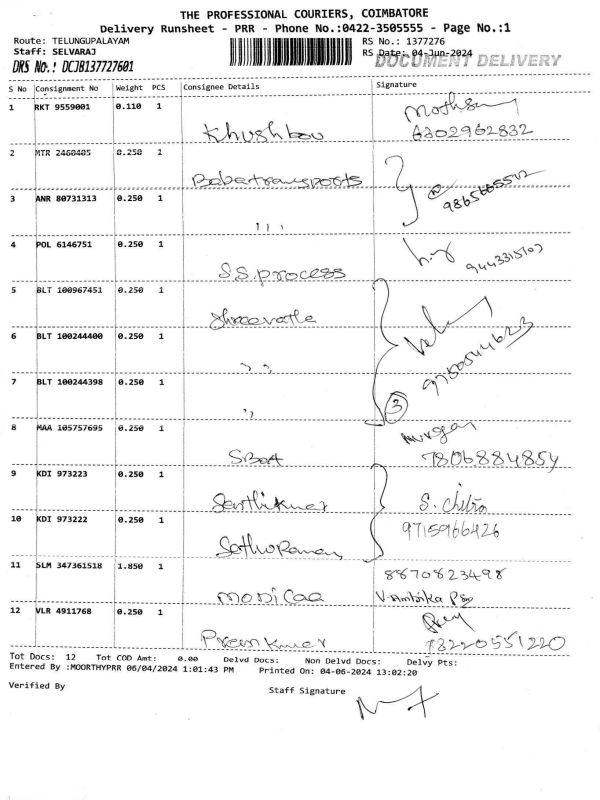 THE PROFESSIONAL COURIERS, COIMBATORE
Delivery Runsheet - PRR - Phone No.:0422-3505555 - Page No.:1
Route: TELUNGUPALAYAM RS No.: 1377276
Staff: SELVARAJ RS Date: 04-Jun-2024
DRS No.: DCJB137727601 DOCUMENT DELIVERY
S No Consignment No Weight PCS Consignee Details Signature
1 RKT 9559001 0.110 1
Khushbou 6302962832
2 MTR 2460405 0.250 1
Babatransports
3 ANR 80731313 0.250 1
,,,
4 POL 6146751 0.250 1
S.S.process 9443315107
5 BLT 100967451 0.250 1
6 BLT 100244400 0.250 1
,,
9750544623
7 BLT 100244398 0.250 1
,, 3
8 MAA 105757695 0.250 1 Murgan
7806884854
9 KDI 973223 0.250 1
S. Chitra
10 KDI 973222 0.250 1 9715966426
11 SLM 347361518 1.850 1 8870823498
monicaa V.Ambika
12 VLR 4911768 0.250 1
Premkumar
Tot Docs: 12 Tot COD Amt: 0.00 Delvd Docs: Non Delvd Docs: Delvy Pts:
Entered By :MOORTHYPRR 06/04/2024 1:01:43 PM Printed On: 04-06-2024 13:02:20
Verified By Staff Signature